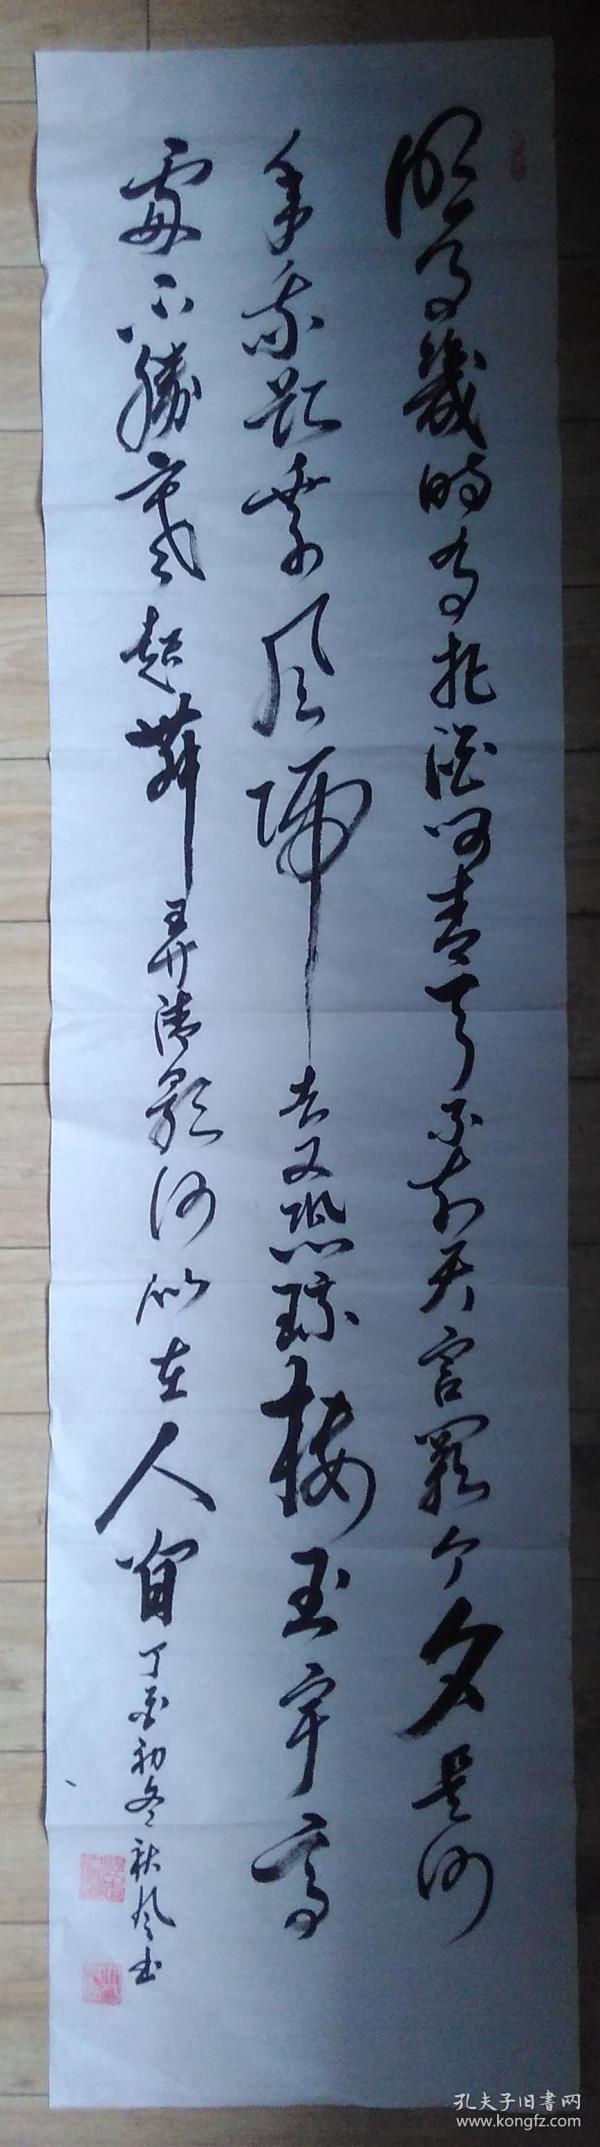 明月幾時有把酒問青天不知天宮闕今夕是何
年我欲乘風歸去又恐瓊樓玉宇高
處不勝寒起舞弄清影何似在人間
丁酉初冬秋風书
孔夫子旧書网
www.kongfz.com